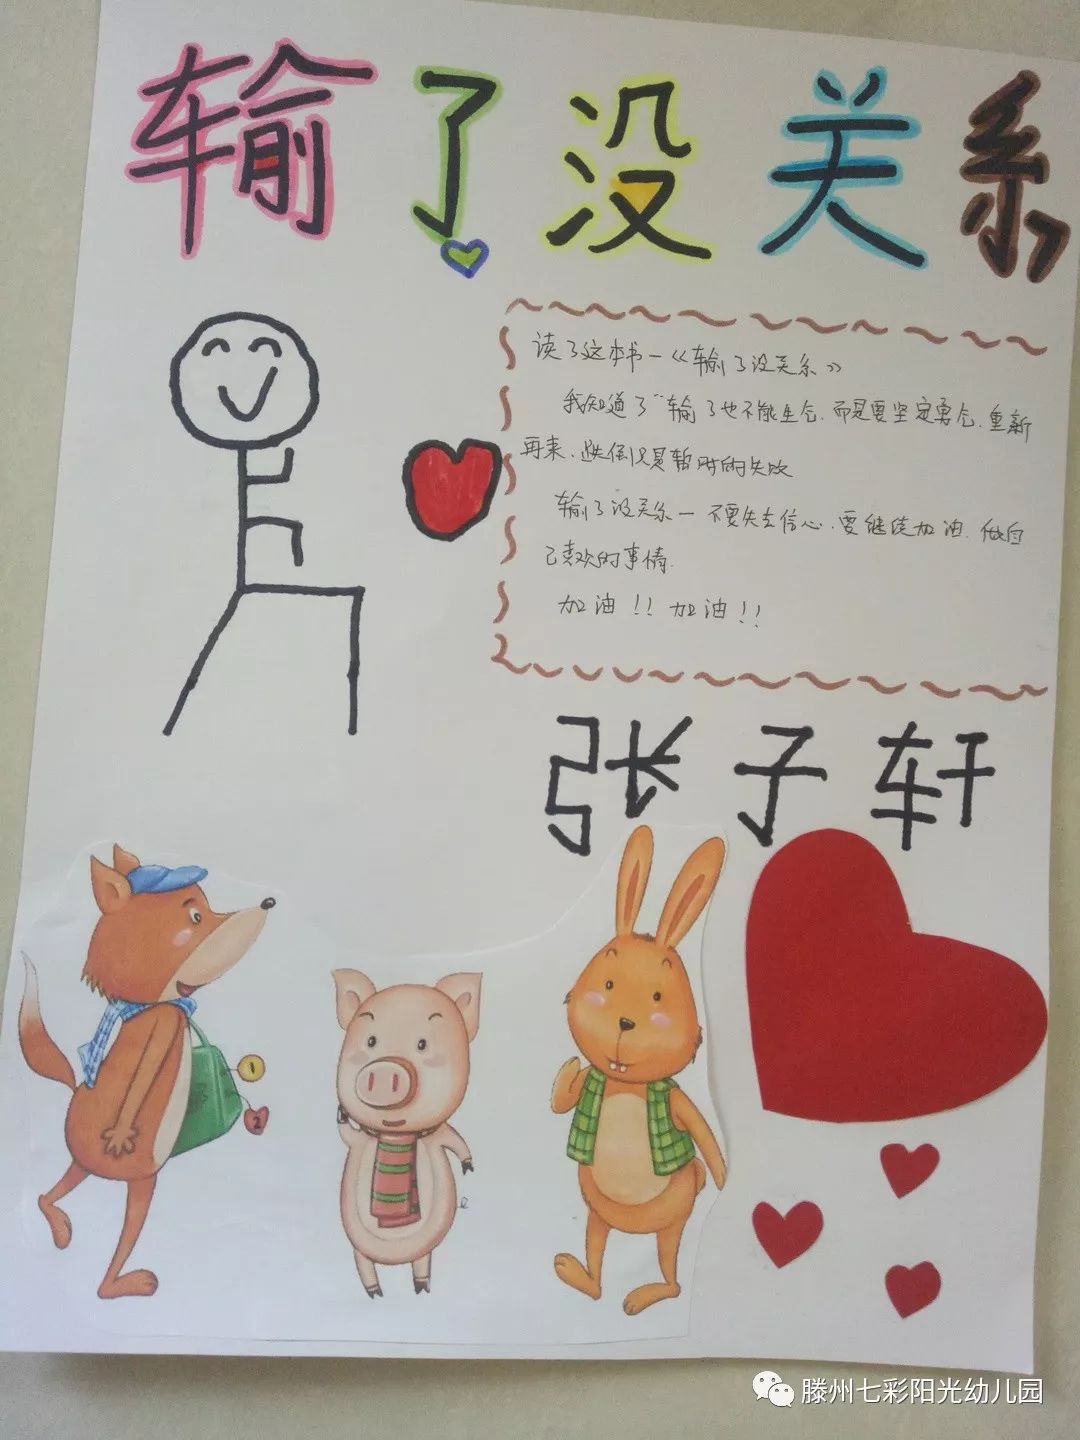 输了没关系
读了这本书一《输了没关系》
我知道了"输了也不能生气.而是要坚定勇气.重新
再来.跌倒只是暂时的失败
输了没关系一不要失去信心.要继续加油.做自
己喜欢的事情.
加油!!加油!!
张子轩
1
2
滕州七彩阳光幼儿园